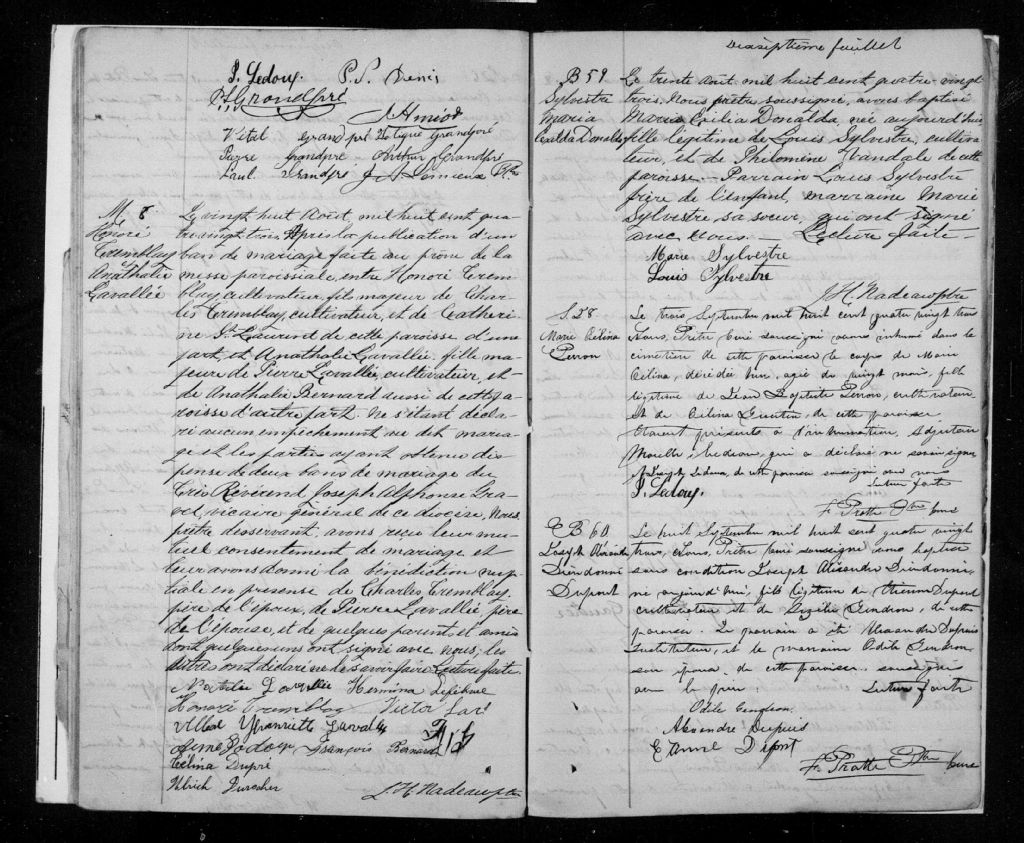 J. Ledoux. P. S. Denis
Grandpré
Vital Grandpré
Pierre Grandpré Arthur Grandpré
Paul Grandpré J. A. Lemieux Ptre
M 8
Honoré
Tremblay
Anathalie
Lavallée
Le vingt huit Août mil huit cent qua
tre vingt trois, Après la publication d'un
ban de mariage faite au prône de la
messe paroissiale, entre Honoré Trem
blay, cultivateur, fils majeur de Char
les Tremblay, cultivateur, et de Catheri
ne St. Laurent de cette paroisse d'une
part, et Anathalie Lavallée, fille ma
jeure de Pierre Lavallée, cultivateur, et
de Anathalie Bernard aussi de cette pa
roisse d'autre part. Ne s'étant décla
ré aucun empêchement au dit maria
ge et les parties ayant obtenu dis
pense de deux bans de mariage du
Très Révérend Joseph Alphonse Gra
vel, vicaire général de ce diocèse, Nous
prêtre desservant, avons reçu leur mu
tuel consentement de mariage et
leur avons donné la bénédiction nup
tiale en présense de Charles Tremblay,
père de l'époux, de Pierre Lavallée père
de l'épouse, et de quelques parents et amis
dont quelques uns ont signé avec nous, les
autres ont déclaré ne le savoir faire Lecture faite.
Natalie Lavallée Hermina
Honoré Tremblay Victor
Henriette Lavallée
Aimé Godoin François Bernard
Célina Dupré
Ulrich Durocher J. H. Nadeau ptre
Dixseptième feuillet
B 59
Sylvestre
Maria
Donalda
Le trente Août mil huit cent quatre-vingt
trois, Nous prêtre soussigné, avons baptisé
Maria Donalda, née aujourd'hui
fille légitime de Louis Sylvestre, cultiva
teur, et de Philomène Vandale de cette
paroisse. Parrain Louis Sylvestre
frère de l'enfant, marraine Marie
Sylvestre sa soeur, qui ont signé
avec nous. — Lecture faite —
Marie Sylvestre
Louis Sylvestre
J. H. Nadeau ptre
S. 28
Marie Célina
Perron
Le trois Septembre mil huit cent quatre vingt trois
Nous, Prêtre Curé soussigné avons inhumé dans le
cimetière de cette paroisse le corps de Marie
Célina, décédée hier, agée de vingt mois, fille
légitime de Jean Baptiste Perron, cultivateur
et de Célina, de cette paroisse
Etaient présents à l'inhumation,
bedeau, qui a déclaré ne savoir signer
et Joseph Ledoux, de cette paroisse soussigné avec nous
Lecture faite
J. Ledoux.
F. Pratte Ptre Curé
B 60
Joseph Alexandre
Dieudonné
Dupont
Le huit Septembre mil huit cent quatre vingt
trois, Nous, Prêtre Curé soussigné avons baptisé
sous condition Joseph Alexandre Dieudonné,
né aujourd'hui, fils légitime de Etienne Dupont
cultivateur et de Gendron, de cette
paroisse. Le parrain a été Alexandre Dupuis
Instituteur, et la marraine Odile Gendron
de cette paroisse, soussignés
avec le père. Lecture faite
Odile Gendron
Alexandre Dupuis
Etienne Dupont
F. Pratte Ptre Curé